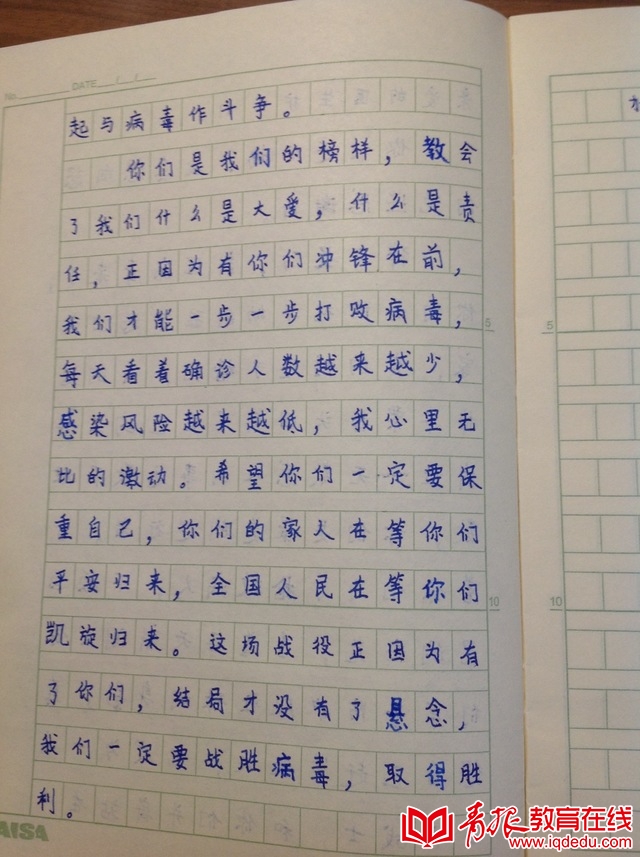 No. DATE / /
起与病毒作斗争。
你们是我们的榜样，教会
了我们什么是大爱，什么是责
任，正因为有你们冲锋在前，
我们才能一步一步打败病毒，
每天看着确诊人数越来越少，
感染风险越来越低，我心里无
比的激动。希望你们一定要保
重自己，你们的家人在等你们
平安归来，全国人民在等你们
凯旋归来。这场战役正因为有
了你们，结局才没有了悬念，
我们一定要战胜病毒，取得胜
利。
5
10
5
10
AISA
青报教育在线
www.iqdedu.com